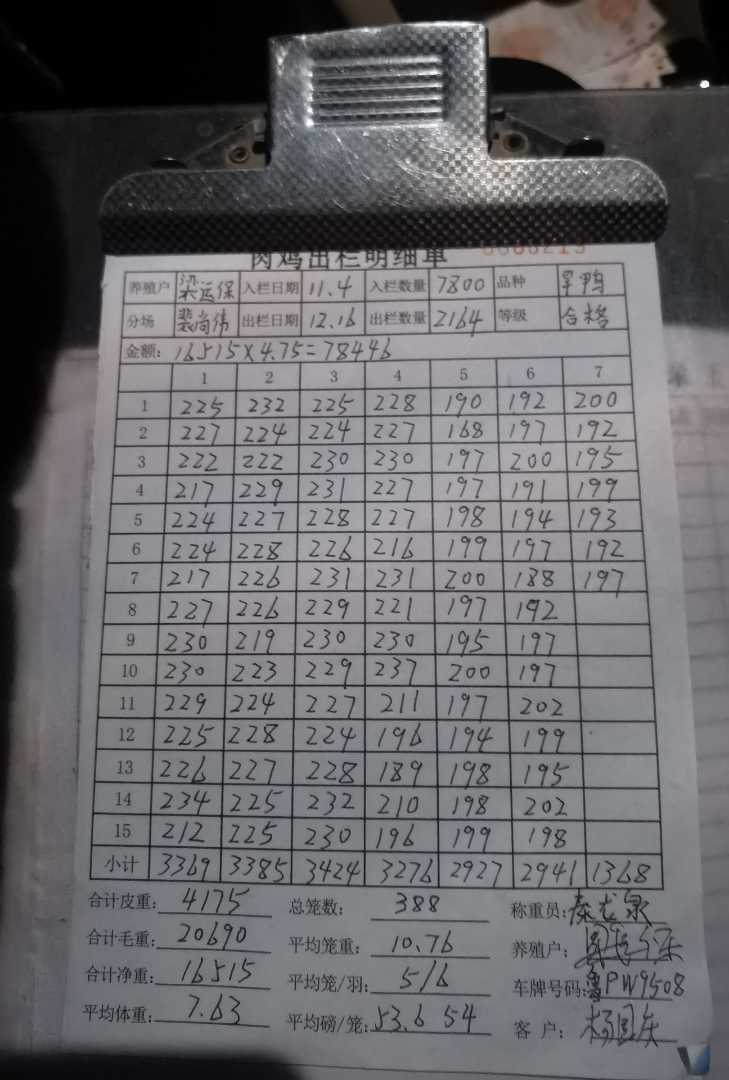 肉鸡出栏明细单
养殖户 梁运保 入栏日期 11.4 入栏数量 7800 品种 旱鸭
分场 裴尚伟 出栏日期 12.16 出栏数量 2164 等级 合格
金额: 16515×4.75=78446
1 2 3 4 5 6 7
1 225 232 225 228 190 192 200
2 227 224 224 227 168 197 192
3 222 222 230 230 197 200 195
4 217 229 231 227 197 191 199
5 224 227 228 227 198 194 193
6 224 228 226 216 199 197 192
7 217 226 231 231 200 188 197
8 227 226 229 221 197 192
9 230 219 230 230 195 197
10 230 223 229 237 200 197
11 229 224 227 211 197 202
12 225 228 224 196 194 199
13 226 227 228 189 198 195
14 234 225 232 210 198 202
15 212 225 230 196 199 198
小计 3369 3385 3424 3276 2927 2941 1368
合计皮重: 4175 总笼数: 388 称重员: 秦龙泉
合计毛重: 20690 平均笼重: 10.76 养殖户:
合计净重: 16515 平均笼/羽: 5/6 车牌号码: 鲁PW9508
平均体重: 7.63 平均磅/笼: 53.6 54 客户: 杨国庆